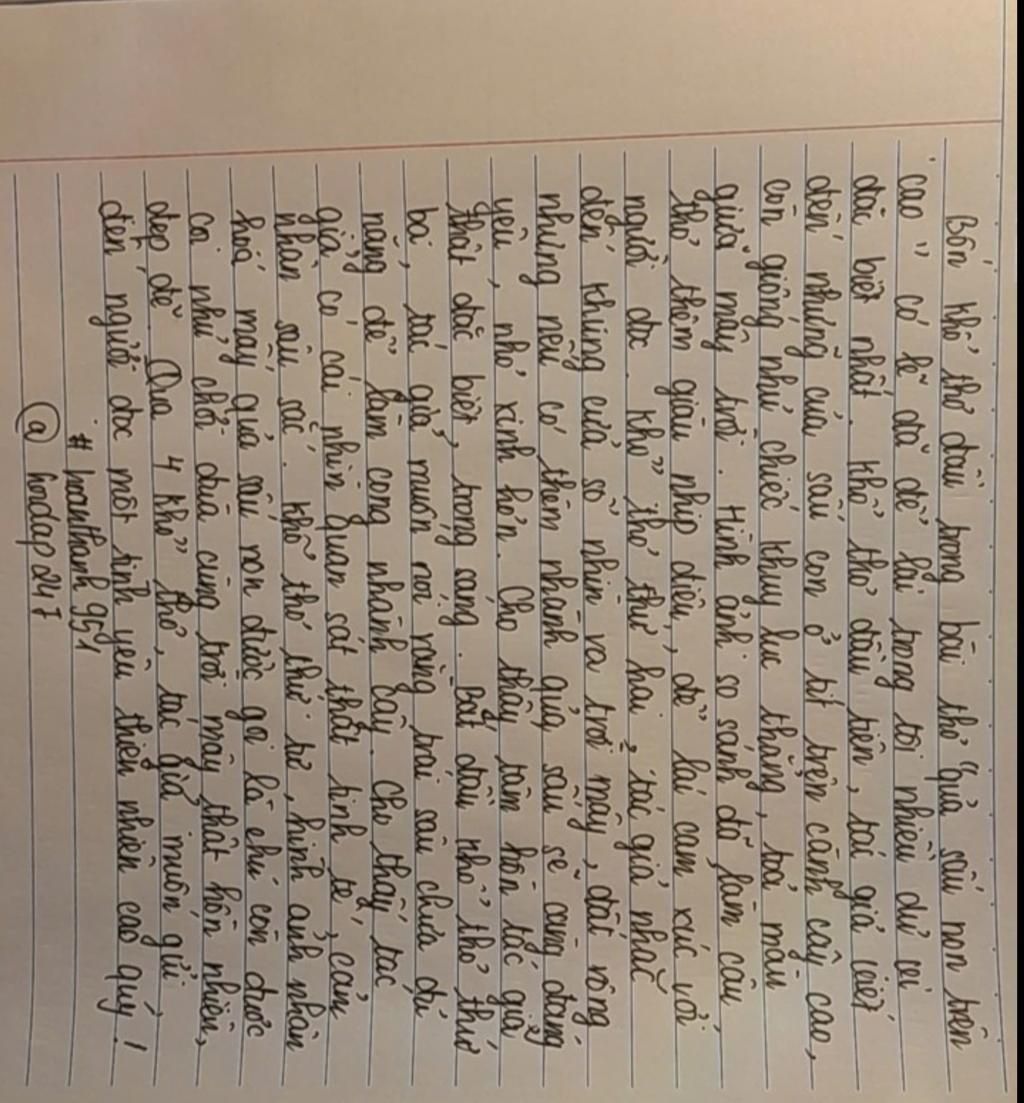 Bốn khổ thơ đầu trong bài thơ "quả sấu non trên
cao" có lẽ đã để lại trong tôi nhiều dư vị
đặc biệt nhất. Khổ thơ đầu tiên, tác giả viết
đến những của sấu con ở tít trên cành cây cao,
còn giống như chiếc khuy lục thắng, toả màu
giữa mây trời. Hình ảnh so sánh đó, làm câu
thơ thêm giàu nhịp điệu, để lại cảm xúc với
người đọc. Khổ thơ thứ hai, tác giả nhắc
đến khung cửa sổ nhìn va trời mây, đất rộng
nhưng nếu có thêm nhành quả sấu sẽ càng đáng
yêu, nhỏ xinh hơn. Cho thấy tâm hồn tác giả
thật đặc biệt, trong sáng. Bắt đầu khổ thơ thứ
ba, tác giả muốn nói rằng trái sâu chưa đủ
nặng để làm cong nhành cây. Cho thấy tác
giả có cái nhìn quan sát thật tinh tế, cảm
nhận sâu sắc. Khổ thơ thứ tư, hình ảnh nhân
hoá mấy quả sấu non được gọi là chú còn được
coi như chơi đùa cùng trời mây thật hồn nhiên,
đẹp đẽ. Qua 4 khổ thơ, tác giả muốn gửi
đến người đọc một tình yêu thiên nhiên cao quý!
# hoanthanh951
@ hoidap247